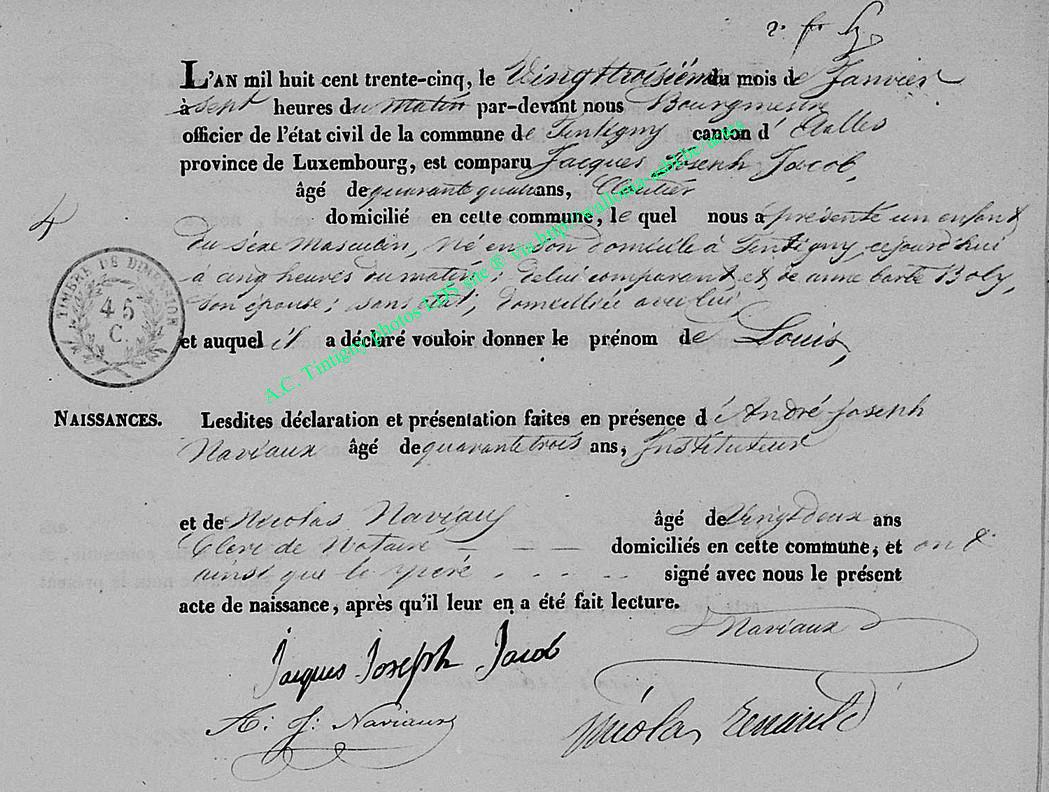 L'AN mil huit cent trente-cinq, le Vingttroisième du mois de Janvier
à sept heures du Matin par-devant nous Bourgmestre
officier de l'état civil de la commune de Tintigny canton d'Etalles
province de Luxembourg, est comparu Jacques Joseph Jacob,
âgé de quarante quatre ans, Cloutier
domicilié en cette commune, le quel nous a présenté un enfant
du sèxe Masculin, né en son domicile à Tintigny, cejourd'hui
à cinq heures du matin, de lui comparent, et de anne barbe Boly,
son épouse; sans état; domiciliée avec lui,
et auquel il a déclaré vouloir donner le prénom de Louis,
4
TIMBRE DE DIMENSION
45
C.
NAISSANCES.
Lesdites déclaration et présentation faites en présence d'André Joseph
Naviaux âgé de quarante trois ans, Instituteur
et de Nicolas Naviaux âgé de Vingt deux ans
Clerc de Notaire - - - domiciliés en cette commune, et ont
ainsi que le père . . . . . signé avec nous le présent
acte de naissance, après qu'il leur en a été fait lecture.
Naviaux
Jacques Joseph Jacob
A: J: Naviaux
Nicolas
A.C. Tintigny photos LDS site ® via http: